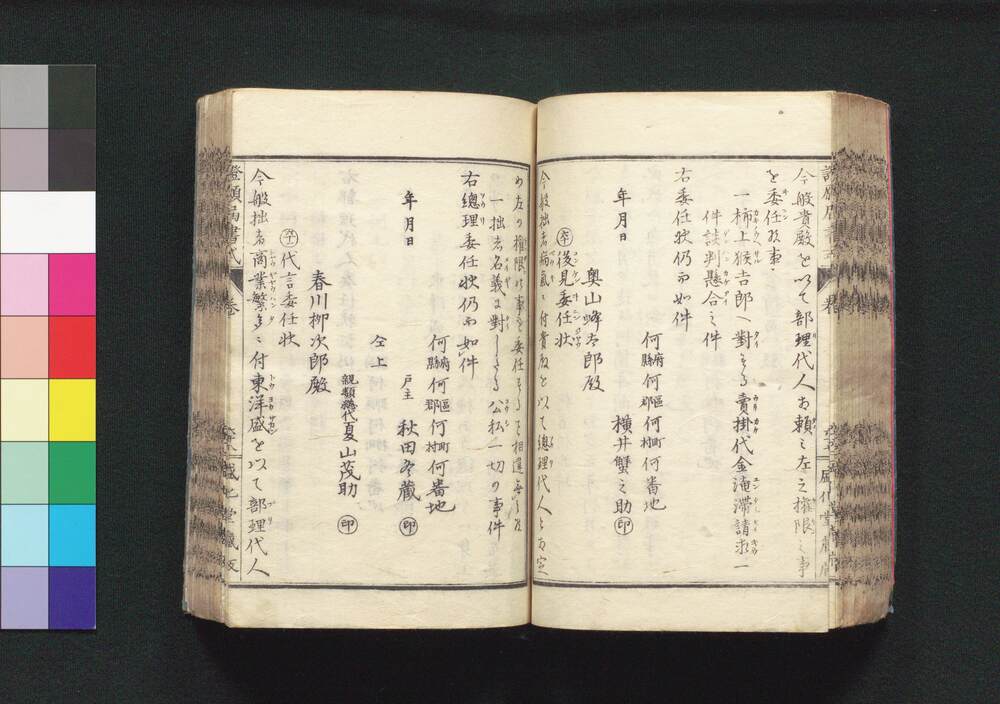 今般貴殿を以て部理代人お頼ミ左之権限之事
を委任致事
一柿上猴吉郎ヘ對する賣掛代金淹滞請求一
件談判懸合之件
右委任状仍而如件
何府縣何區郡何町村何番地
年月日 横井蟹之助 印
奥山蜂太郎殿
後見委任状
今般拙者病氣ニ付貴殿を以て總理代人と相定
め左の権限の事を委任
一拙者名義に對したる公私一切の事件
右總理委任状仍而如件
何府縣何區郡何町村何番地
年月日 戸主 秋田冬藏 印
仝上 親類總代 夏山茂助 印
春川柳次郎殿
代言委任状
今般拙者商業繁多ニ付東洋盛を以て部理代人